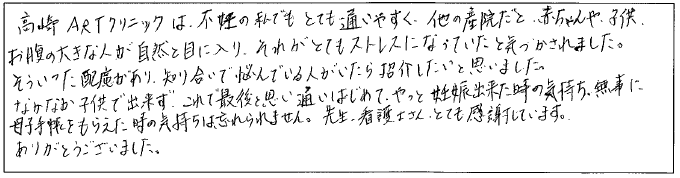 高崎ARTクリニックは、不妊の私でもとても通いやすく、他の産院だと、赤ちゃんや子供、
お腹の大きな人が自然と目に入り、それがとてもストレスになっていたと気づかされました。
そういった配慮があり、知り合いで悩んでいる人がいたら紹介したいと思いました。
なかなか子供で出来ず、これで最後と思い通いはじめて、やっと妊娠出来た時の気持ち、無事に
母子手帳をもらえた時の気持ちは忘れられません。先生、看護士さん、とても感謝しています。
ありがとうございました。